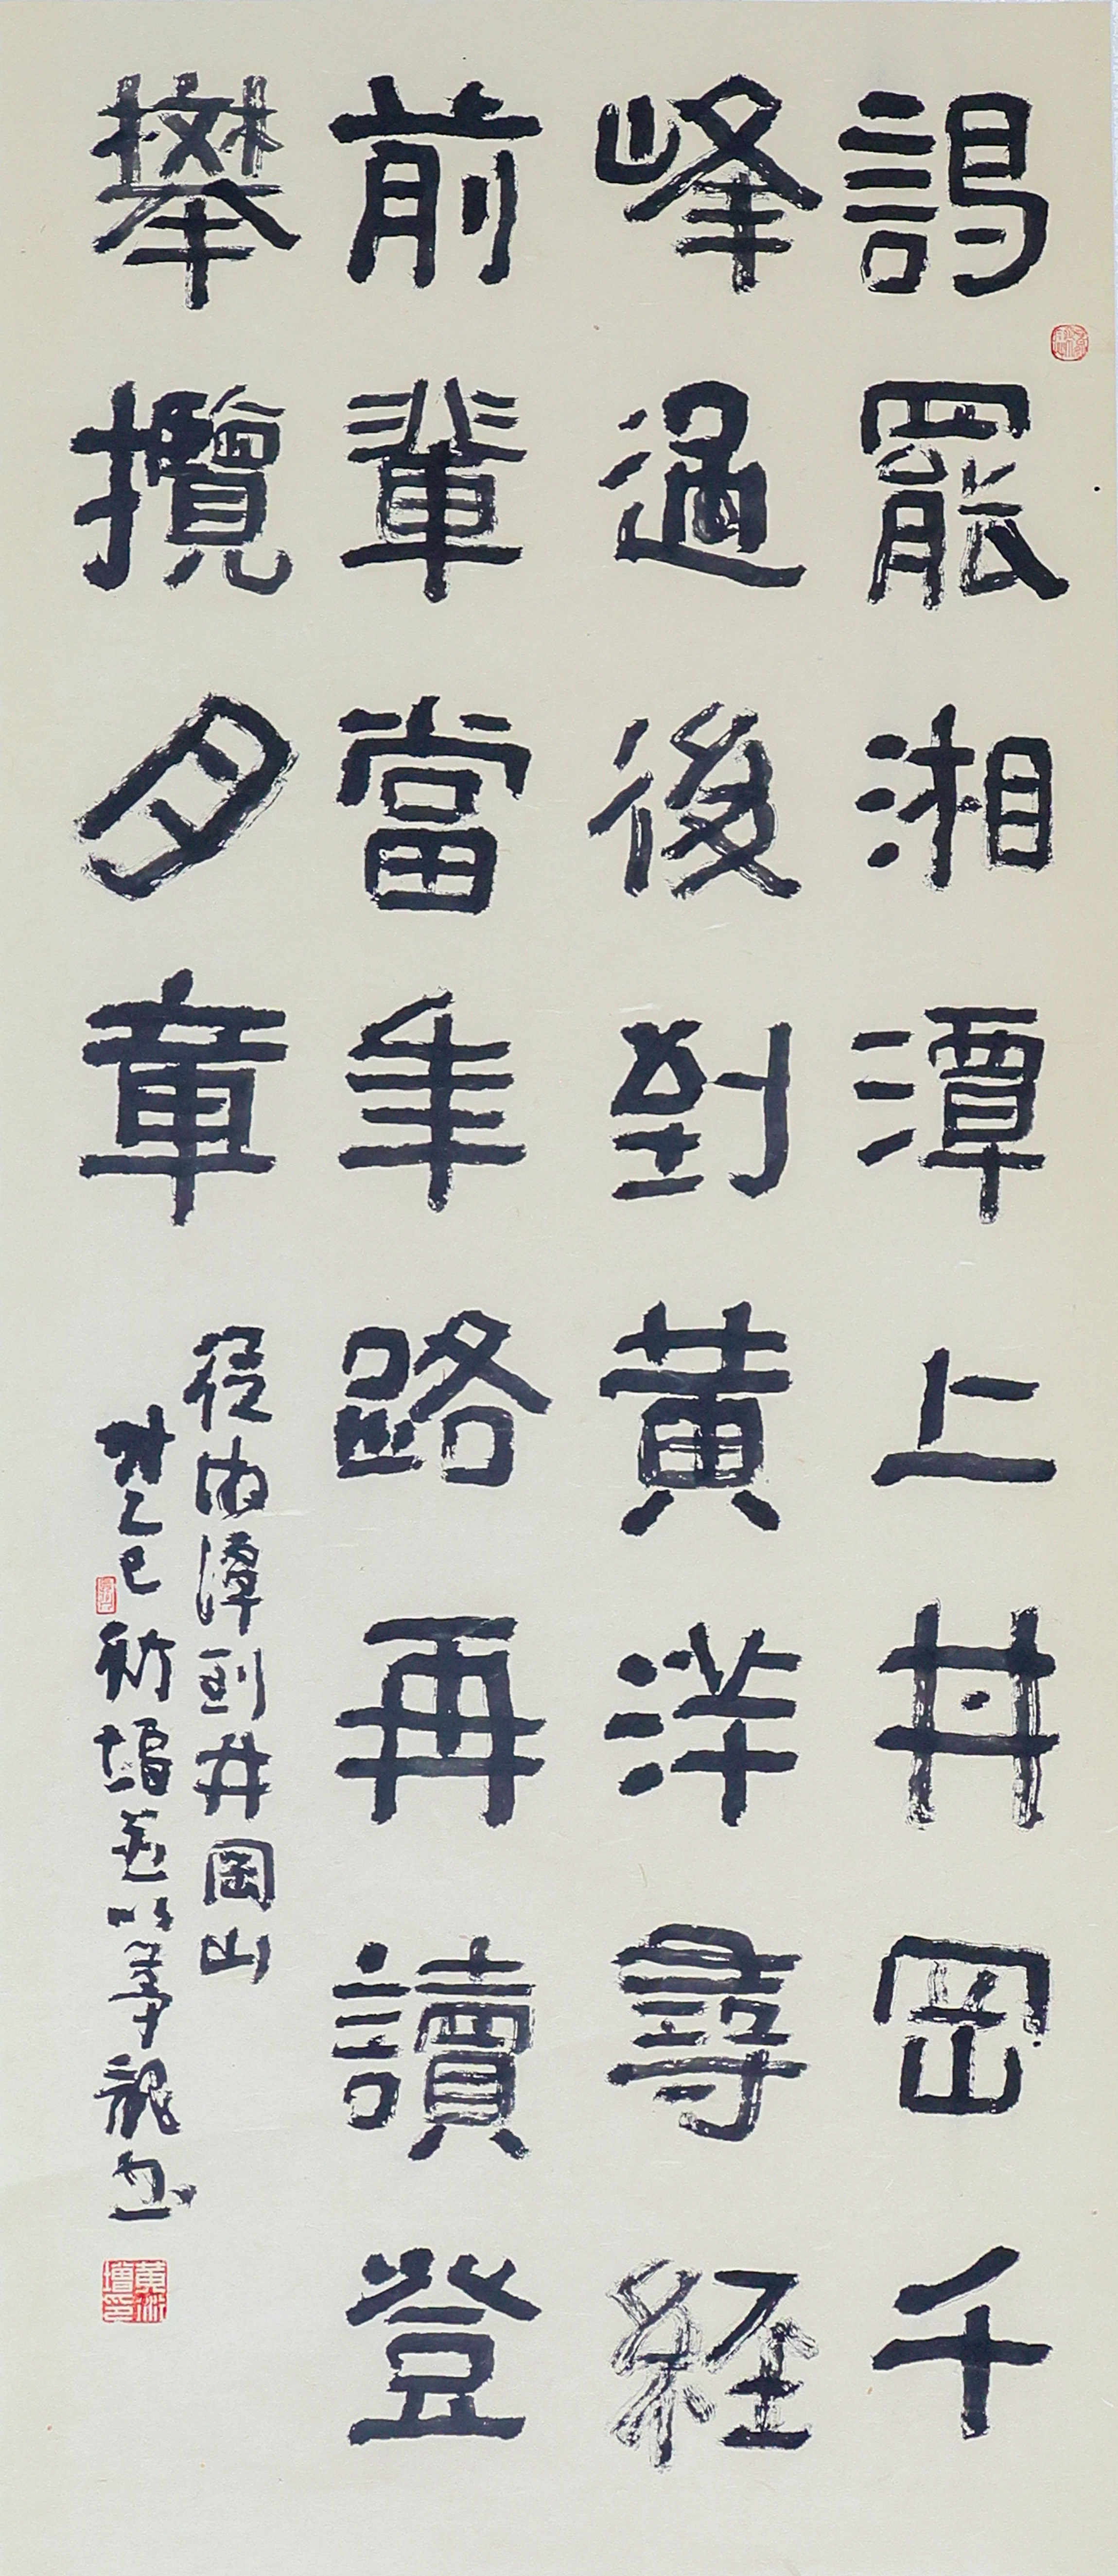 謁罷湘潭上井岡千
峰過後到黄洋尋経
前輩當年路再讀登
攀攬夕章
從湘潭到井岡山
時乙巳
龍書
黄衍增印